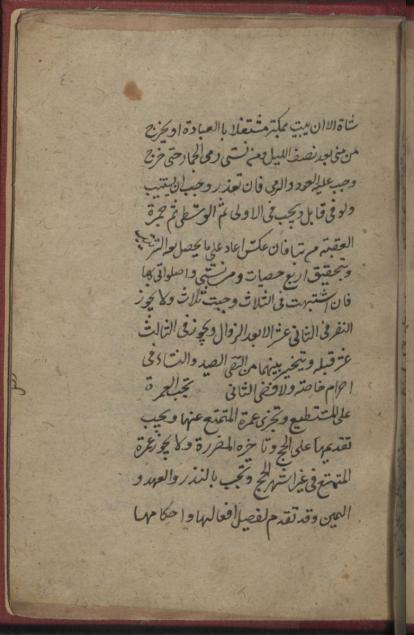 شاة الا ان يبيت بمكة مشتغلا بالعبادة او يخرج
من منى بعد نصف الليل ومن نسى رمى الجمار حتى خرج
وجب عليه العود والرمى فان تعذر وجب ان يستنيب
ولو فى قابل ويجب فى الاولى ثم الوسطى ثم جمرة
العقبة مرتبا فان عكس اعاد على ما يحصل بعد الترتيب
ويتحقق اربع حصيات ومن نسى
فان اشتبهت فى الثلاث وجبت ثلاث ولا يجوز
النفر فى الثانى عشر الا بعد الزوال ويجوز فى الثالث
عشر قبله ويتخير بينهما من اتقى الصيد والنساء فى
احرام خاصة والا فى الثانى تجب العمرة
على المستطيع وتجزى عمرة المتمتع عنها ويجب
تقديمها على الحج وتاخير المفردة ولا يجوز عمرة
المتمتع فى غير اشهر الحج وتجب بالنذر والعهد و
اليمين وقد تقدم تفصيل افعالها واحكامها